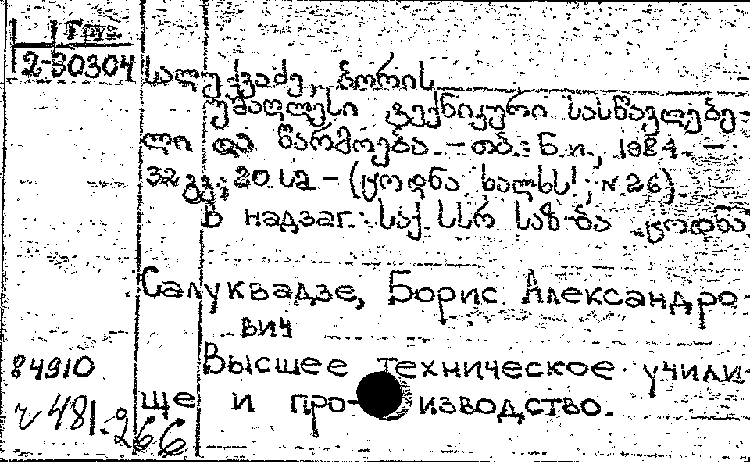 Груз.
2-30304
სალუქვაძე, ბორის
უმაღლესი ტექნიკური სასწავლებე-
ლი და წარმოება. – თბ.: Б.и., 1984. –
32 გვ.; 20 სმ – (ცოდნა ხალხს!; N 26).
В надзаг.: საქ. სსრ საზ-ბა ცოდნა
Салуквадзе, Борис Александро-
вич
84910
Высшее техническое учили-
ще и про-изводство.